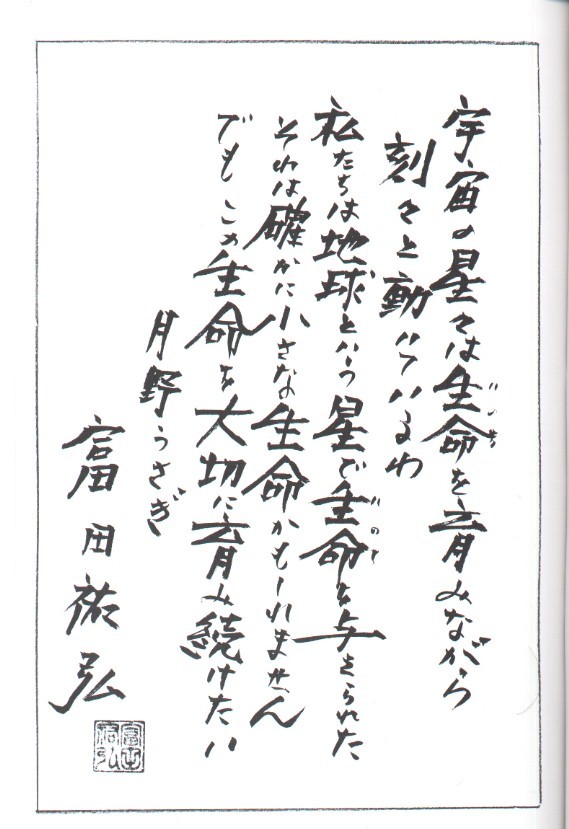 宇宙の星々は生命を育みながら
いのち
刻々と動いているわ
私たちは地球という星で生命を与えられた
いのち
それは確かに小さな生命かもしれません
でもこの生命を大切に育み続けたい
月野うさぎ
富田祐弘